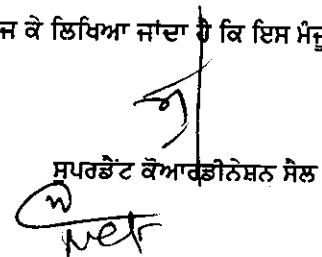 ਜ ਕੇ ਲਿਖਿਆ ਜਾਂਦਾ ਹੈ ਕਿ ਇਸ ਮੰਜੂ
ਸੁਪਰਡੈਂਟ ਕੋਆਰਡੀਨੇਸ਼ਨ ਸੈਲ